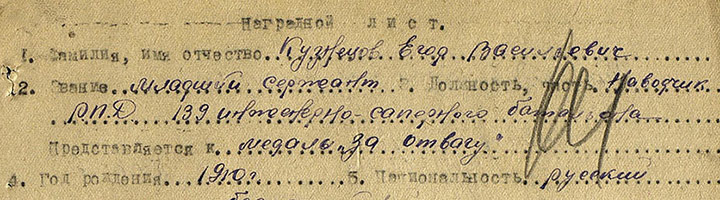 Наградной лист.
1. Фамилия, имя отчество Кузнецов Егор Васильевич
2. Звание младший сержант 3. Должность, часть Наводчик
Р.П.Д 139 инженерно-саперного батальона
Представляется к медаль "За отвагу"
4. Год рождения 1910г. 5. Национальность русский